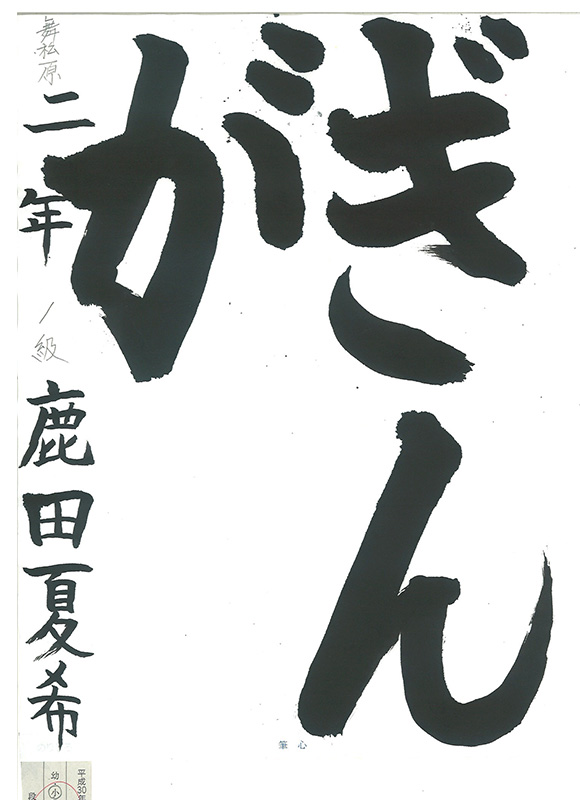 ぎん
が
舞松原
二年
1級
鹿田夏希
心筆
平成30年
幼
小
段